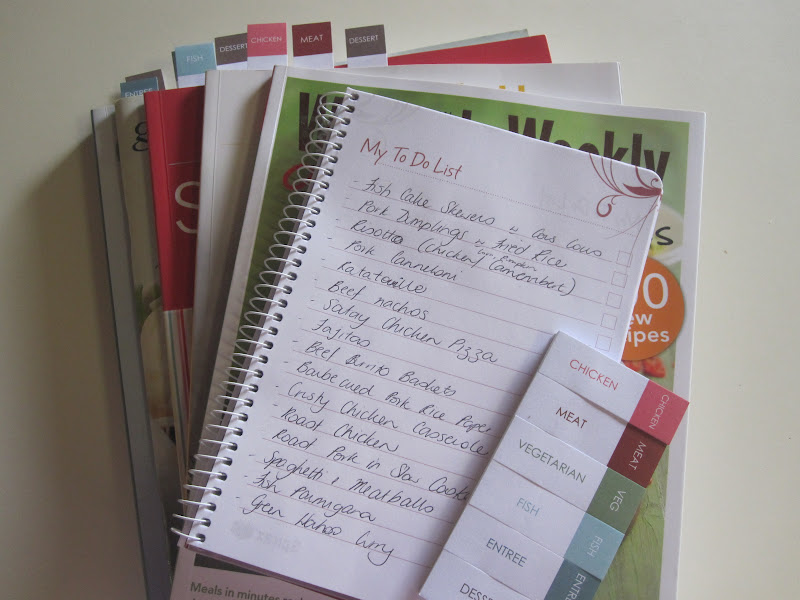 ENTREE
FISH
DESSERT
CHICKEN
MEAT
DESSERT
Weekly
My To Do List
- Fish Cake Skewers w Cous Cous
- Pork Dumplings w Fried Rice
- Risotto (Chicken/ Camembert)
- Pork Cannelloni
- Ratatouille
- Beef nachos
- Satay Chicken Pizza
- Fajitas
- Beef Burrito Baskets
- Barbecued Pork Rice Paper
- Crusty Chicken Casserole
- Roast Chicken
- Roast Pork in Slow Cooker
- Spaghetti & Meatballs
- Fish Parmigana
- Green Curry
CHICKEN CHICKEN
MEAT MEAT
VEGETARIAN VEG
FISH FISH
ENTREE ENTRE
DESSE
Meals in minutes